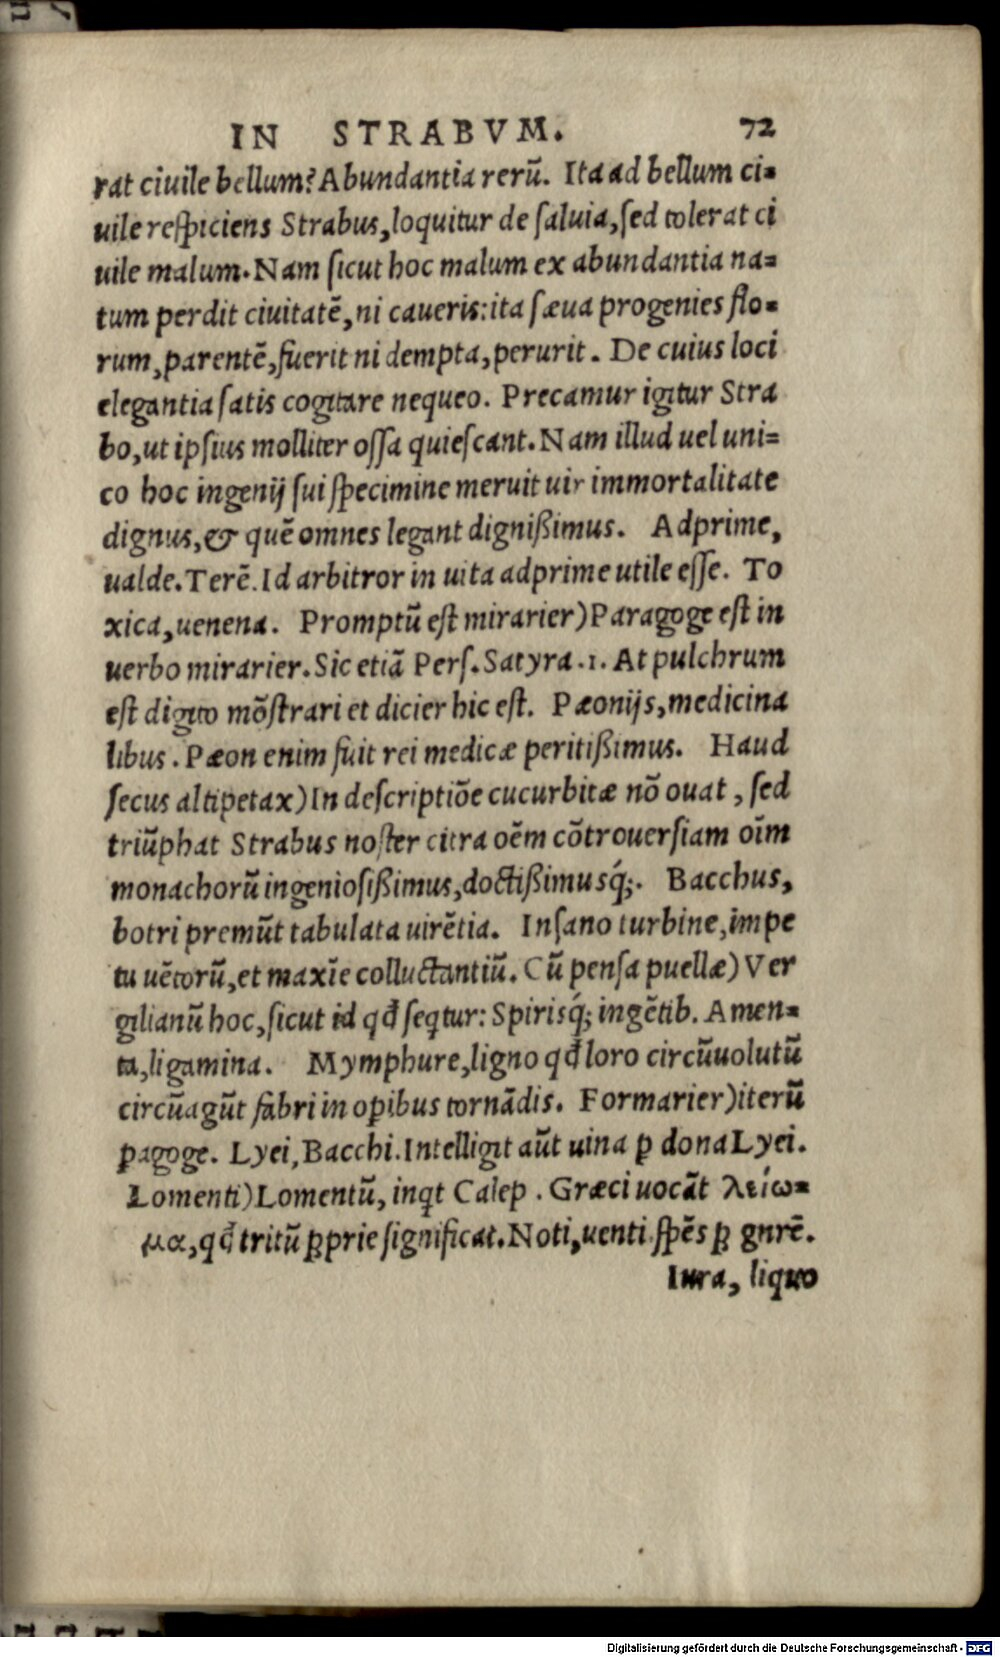 IN STRABVM. 72
rat ciuile bellum? Abundantia rerũ. Ita ad bellum ci-
uile respiciens Strabus, loquitur de saluia, sed tolerat ci
uile malum. Nam sicut hoc malum ex abundantia na-
tum perdit ciuitatẽ, ni caueris: ita sæua progenies flo-
rum, parentẽ, fuerit ni dempta, perurit. De cuius loci
elegantia satis cogitare nequeo. Precamur igitur Stra
bo, ut ipsius molliter ossa quiescant. Nam illud uel uni-
co hoc ingenij sui specimine meruit uir immortalitate
dignus, & quẽ omnes legant dignißimus. Adprime,
ualde. Terẽ. Id arbitror in uita adprime utile esse. To
xica, uenena. Promptũ est mirarier) Paragoge est in
uerbo mirarier. Sic etiã Pers. Satyra .1. At pulchrum
est digito mõstrari et dicier hic est. Pæonijs, medicina
libus. Pæon enim fuit rei medicæ peritißimus. Haud
secus altipetax) In descriptiõe cucurbitæ nõ ouat, sed
triũphat Strabus noster citra oẽm cõtrouersiam oĩm
monachorũ ingeniosißimus, doctißimusq́;. Bacchus,
botri premũt tabulata uirẽtia. Insano turbine, impe
tu uẽtorũ, et maxĩe colluctantiũ. Cũ pensa puellæ) Ver
gilianũ hoc, sicut id qđ seqtur: Spirisq́; ingẽtib. Amen-
ta, ligamina. Mymphure, ligno qđ loro circũuolutũ
circũagũt fabri in oꝑibus tornãdis. Formarier) iterũ
ꝑagoge. Lyei, Bacchi. Intelligit aũt uina ꝑ dona Lyei.
Lomenti) Lomentũ, inqt Calep. Græci uocãt λείω-
μα, qđ tritũ ꝓprie significat. Noti, uenti spẽs ꝓ gnrẽ.
Iura, liquo
Digitalisierung gefördert durch die Deutsche Forschungsgemeinschaft - DFG